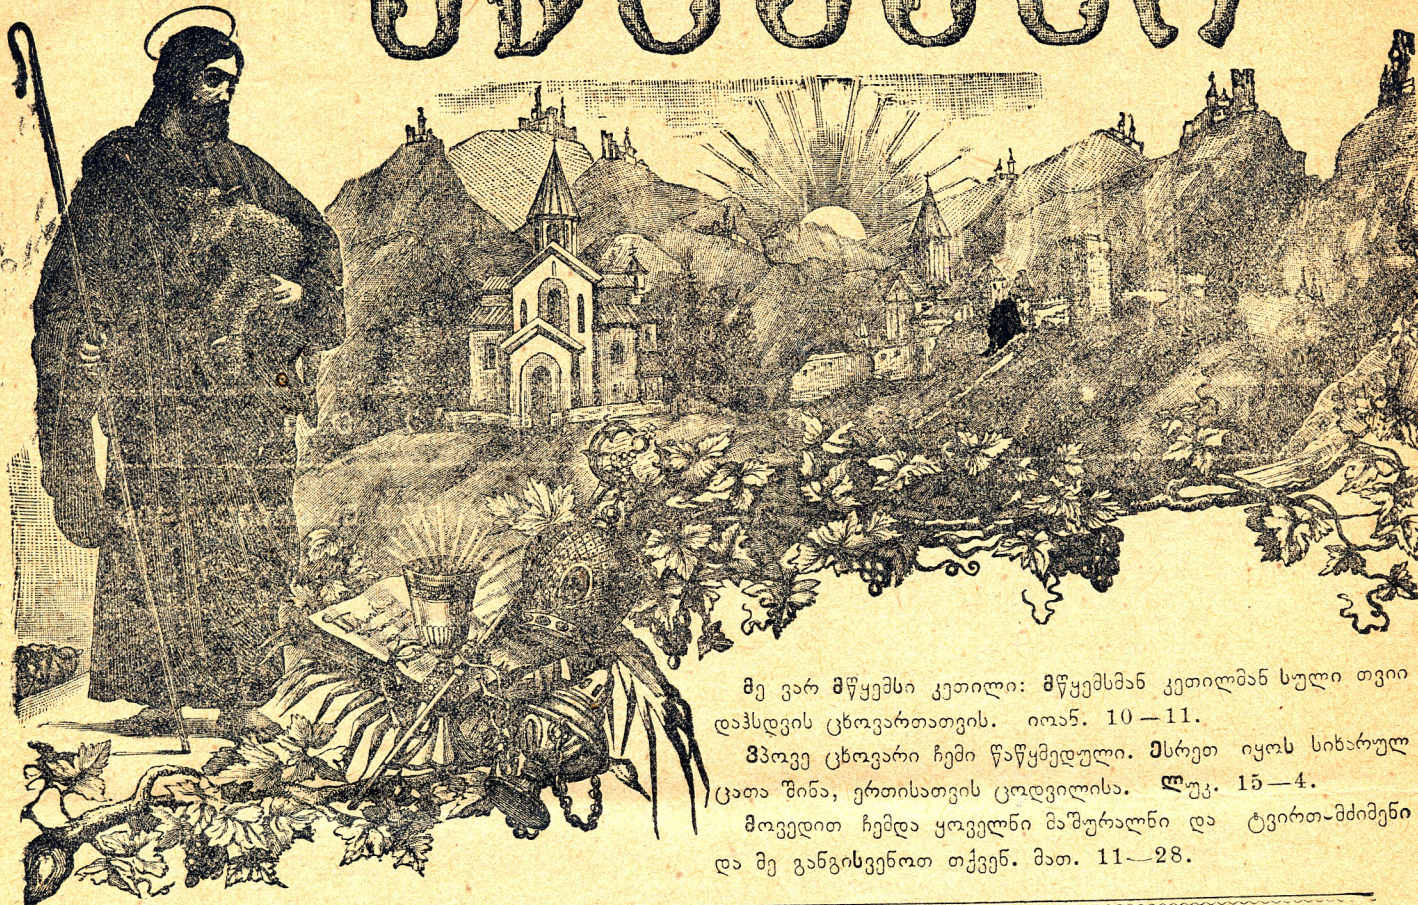 მე ვარ მწყემსი კეთილი: მწყემსმან კეთილმან სული თვიი
დაჰსდვის ცხოვართათვის. იოან. 10—11.
ვპოვე ცხოვარი ჩემი წაწყმედული. ესრეთ იყოს სიხარულ
ცათა შინა, ერთისათვის ცოდვილისა. ლუკ. 15—4.
მოვედით ჩემდა ყოველნი მაშურალნი და ტვირთ-მძიმენი
და მე განგისვენოთ თქვენ. მათ. 11—28.